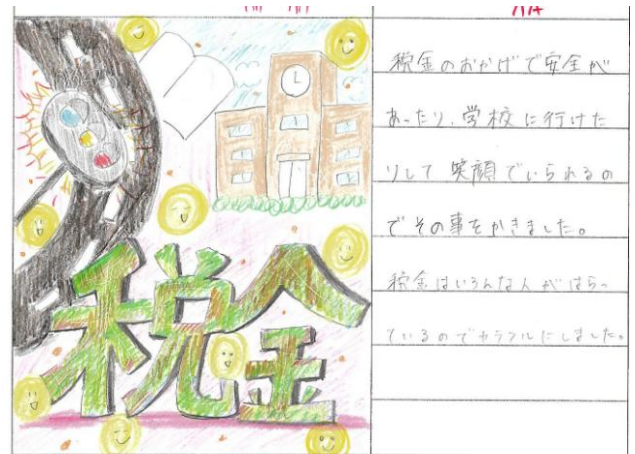 税金
税金のおかげで安全が
あったり、学校に行けた
りして笑顔でいられるの
でその事をかきました。
税金はいろんな人がはらっ
ているのでカラフルにしました。